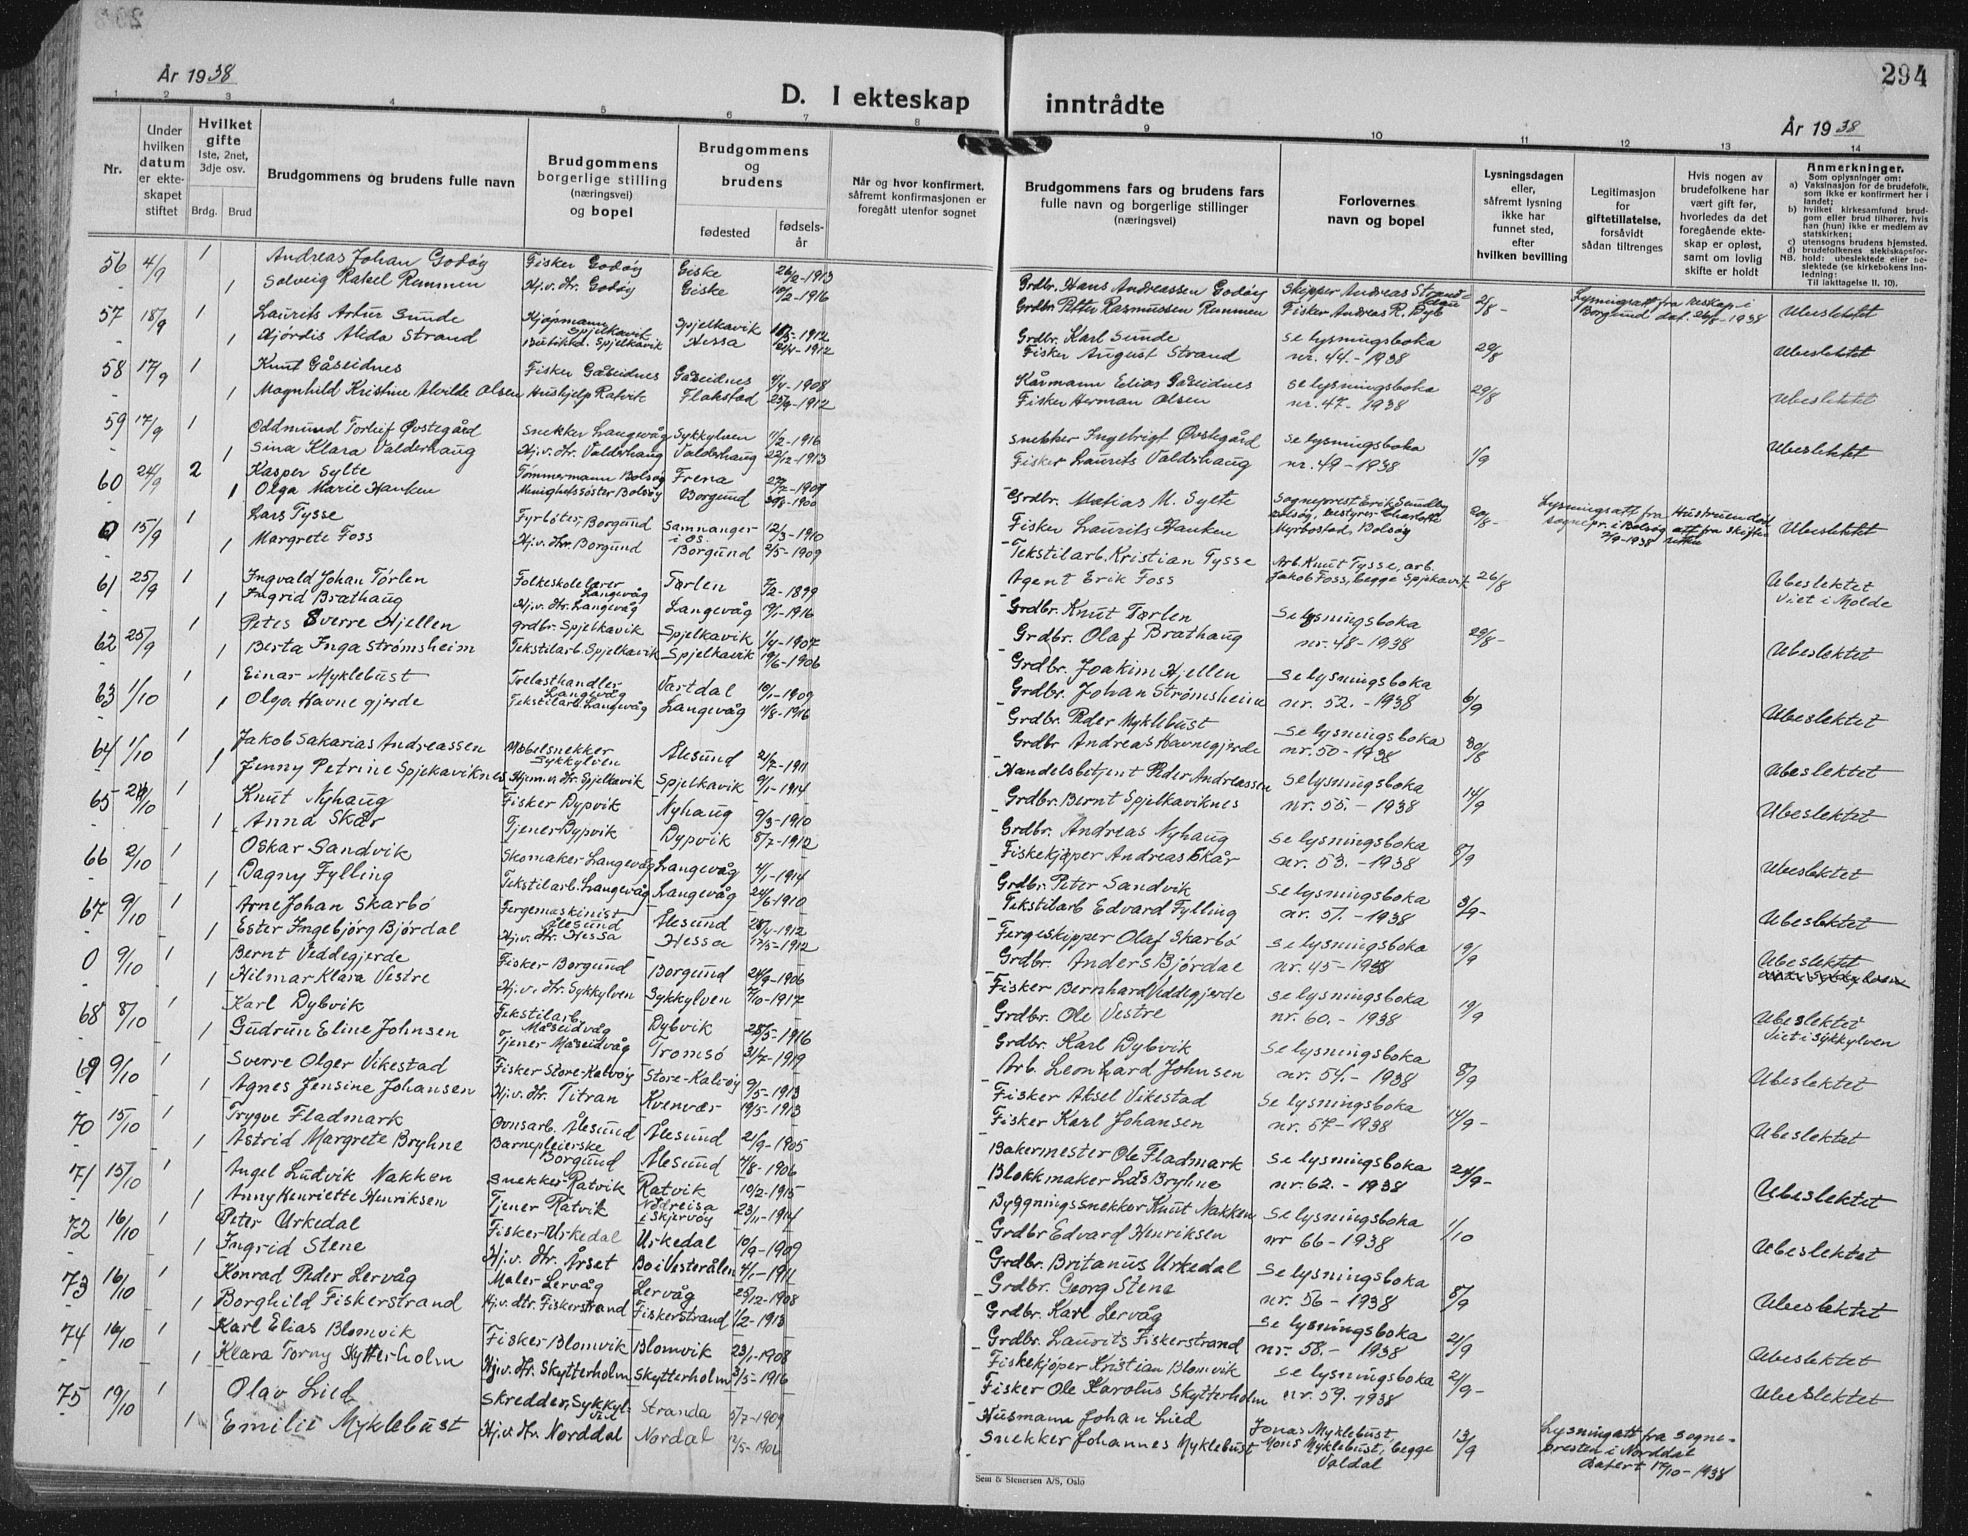 294
År 1938
D. I ekteskap inntrådte
År 1938
1 2 3 4 5 6 7 8 9 10 11 12 13 14
Nr.
Under hvilken datum er ekteskapet stiftet
Hvilket gifte 1ste, 2net, 3dje osv.
Brdg. Brud
Brudgommens og brudens fulle navn
Brudgommens borgerlige stilling (næringsvei) og bopel
Brudgommens og brudens
fødested
fødselsår
Når og hvor konfirmert, såfremt konfirmasjonen er foregått utenfor sognet
Brudgommens fars og brudens fars fulle navn og borgerlige stillinger (næringsvei)
Forlovernes navn og bopel
Lysningsdagen eller, såfremt lysning ikke har funnet sted, efter hvilken bevilling
Legitimasjon for giftetillatelse, forsåvidt sådan tiltrenges
Hvis nogen av brudefolkene har vært gift før, hvorledes da det foregående ekteskap er opløst, samt om lovlig skifte er holdt
Anmerkninger.
Som oplysninger om:
a) Vaksinasjon for de brudefolk, som ikke er konfirmert her i landet;
b) hvilket kirkesamfund brudgom eller brud tilhører, hvis han (hun) ikke er medlem av statskirken;
c) utensogns brudens hjemsted.
d) brudefolkenes slektskapsforhold: ubeslektede eller beslektede (se kirkebokens Innledning:
NB.
Til iakttagelse II, 10).
56 4/9 1 Andreas Johan Godøy Fisker Godøy Giske 26/12-1913 Grdbr. Hans Andreassen Godøy Skipper Andreas 2/8- Lysningsatt fra
1 Solveig Rakel Remmen Hj.v. Hr. Godøy Giske 10/2-1916 Grdbr. Petter Rasmussen Remmen Fisker Andreas R. Dyb Borgund dat. 26/8-1938 Ubeslektet
57 18/9 1 Laurits Artur Sunde Kjøpmann Spjelkavik Spjelkavik 1912 Grdbr. Karl Sunde se lysningsboka 29/8
1 Hjørdis Alida Strand Spjelkavik Hessa 1912 Fisker August Strand nr. 44.-1938 Ubeslektet
58 17/9 1 Knut Gåseidnes Fisker Gåseidnes Gåseidnes 4/4-1908 Kårmann Elias Gåseidnes se lysningsboka 29/8
1 Magnhild Kristine Alvilde Olsen Hushjelp Ratvik Flakstad 25/9-1912 Fisker Herman Olsen nr. 47-1938 Ubeslektet
59 17/9 1 Oddmund Torleif Øvstegård Snekker Langevåg Sykkylven 11/2-1916 Snekker Ingebrigt Øvstegård se lysningsboka 1/9
1 Sina Klara Valderhaug Hj.v. Hr. Valderhaug Valderhaug 22/12-1913 Fisker Laurits Valdshaug nr. 49-1938 Ubeslektet
60 24/9 2 Kasper Sylte Tømmermann Bolsøy Frena 1907 Grdbr. Matias M. Sylte Sogneprest Erik Sundby 20/8- Lysningsatt fra Hustruen død
1 Olga Marie Hanken Menighetssøster Bolsøy Borgund 1900 Fisker Laurits Hanken Bolsøy, bestyrer Charlotte Myrbostad, Bolsøy sognepr. i Bolsøy 2/9-1938 att fra skifteretten Ubeslektet
0 15/9 1 Lars Tysse Fyrbøter, Borgund Samnanger i Os. 12/3-1910 Tekstilarb. Kristian Tysse Arb. Knut Tysse, arb. 26/8
1 Margrete Foss Hj.v. Hr. Borgund Borgund 2/5-1909 Agent Erik Foss Jakob Foss, begge Spjelkavik Ubeslektet Viet i Molde
61 25/9 1 Ingvald Johan Tørlen Folkeskolelærer Langevåg Tærlen 7/2-1899 Grdbr. Knut Tærlen Se lysningsboka 29/8-
1 Ingrid Brathaug Hj.v. Hr. Langevåg Langevåg 19/1-1916 Grdbr. Olaf Brathaug nr. 48-1938 Ubeslektet
62 25/9 1 Peter Sverre Hjellen grdbr. Spjelkavik Spjelkavik 1/4-1907 Grdbr. Joakim Hjellen Se lysningsboka 6/9
1 Berta Inga Strømsheim Tekstilarb. Spjelkavik Spjelkavik 19/6-1906 Grdbr. Johan Strømsheim nr. 52.-1938 Ubeslektet
63 1/10 1 Einar Myklebust Trelasthandler Langevåg Vartdal 10/1-1909 Grdbr. Peder Myklebust Se lysningsboka 30/8
1 Olga Havnegjerde Tekstilarb. Langevåg Langevåg 11/8-1916 Grdbr Andreas Havnegjerde nr. 50-1938 Ubeslektet
64 1/10 1 Jakob Sakarias Andreassen Møbelsnekker Sykkylven Ålesund 21/7-1911 Handelsbetjent Peder Andreassen se lysningsboka 14/9
1 Jenny Petrine Spjelkaviknes Hjem.v. Hr. Spjelkavik Spjelkavik 9/1-1914 Grdbr. Bernt Spjelkaviknes nr. 55.-1938 Ubeslektet
65 1 Knut Nyhaug Fisker Dypvik Nyhaug 9/3-1910 Grdbr. Andreas Nyhaug se lysningsboka 8/9
1 Anna Skår Tjener Dypvik Dypvik 8/7-1912 Fiskekjøper Andreas Skår nr. 53.-1938 Ubeslektet
66 2/10 1 Oskar Sandvik Skomaker Langevåg Langevåg 4/1-1914 Grdbr. Peter Sandvik se lysningsboka 3/9-
1 Dagny Fylling Tekstilarb. Langevåg Langevåg 24/6-1910 Tekstilarb Edvard Fylling nr. 51.-1938 Ubeslektet
67 9/10 1 Arne Johan Skarbø Fergemaskinist Ålesund Ålesund 1912 Fergeskipper Olaf Skarbø se lysningsboka 19/9
1 Ester Ingebjørg Bjørdal Hj.v. Hr. Hessa Hessa 17/5-1912 Grdbr. Anders Bjørdal nr. 45-1938 Ubeslektet
0 9/10 1 Bernt Veddegjerde Fisker Borgund Borgund 24/9-1906 Fisker Bernhard Veddegjerde se lysningsboka 19/9
1 Hilmar Klara Vestre Hj.v. Hr. Sykkylven Sykkylven 7/10-1917 Grdbr. Ole Vestre nr. 60.-1938 Ubeslektet Viet i Sykkylven
68 8/10 1 Karl Dybvik Tekstilarb. Måseidvåg Dybvik 28/5-1916 Grdbr. Karl Dybvik se lysningsboka 8/9
1 Gudrun Eline Johnsen Tjener Måseidvåg Tromsø 31/7-1919 Arb. Leonhard Johnsen nr. 54.-1938 Ubeslektet
69 9/10 1 Sverre Olger Vikestad Fisker Store-Kalvøy Store-Kalvøy 9/5-1913 Fisker Aksel Vikestad Se lysningsboka 14/9-
1 Agnes Jensine Johansen Hj.v. Hr. Titran Kvenvær 19/5-1913 Fisker Karl Johansen nr. 57-1938 Ubeslektet
70 15/10 1 Trygve Fladmark Ovnsarb. Ålesund Ålesund 21/9-1905 Bakermester Ole Fladmark se lysningsboka 24/9-
1 Astrid Margrete Bryhne Barnepleierske Borgund Ålesund 4/8-1906 Blokkmaker Lars Bryhne nr. 62.-1938 Ubeslektet
71 15/10 1 Angel Ludvik Nakken Snekker Ratvik Ratvik 10/2-1915 Byggningssnekker Knut Nakken se lysningsboka 1/10
1 Anny Henriette Henriksen Tjener Ratvik Nordreisa i Skjervøy 23/11-1914 Grdbr Edvard Henriksen nr 66-1938 Ubeslektet
72 16/10 1 Peter Urkedal Fisker Urkedal Urkedal 10/9-1909 Grdbr. Britanus Urkedal Se lysningsboka 8/9
1 Ingrid Stene Hj.v. Hr. Årset Bø i Vesterålen 4/1-1911 Grdbr. Georg Stene nr. 56-1938 Ubeslektet
73 16/10 1 Konrad Peder Lervåg Maler Lervåg Lervåg 25/12-1908 Grdbr. Karl Lervåg Se lysningsboka 21/9
1 Borghild Fiskerstrand Hj.v. dtr. Fiskerstrand Fiskerstrand 1/2-1913 Grdbr. Laurits Fiskerstrand nr. 58.-1938 Ubeslektet
74 16/10 1 Karl Elias Blomvik Fisker Blomvik Blomvik 23/1-1908 Fiskekjøper Kristian Blomvik se lysningsboka 21/9-
1 Klara Torny Skytterholm Hj.v. Hr. Skytterholm Skytterholm 3/5-1916 Fisker Ole Karolus Skytterholm nr. 59.-1938 Ubeslektet
75 19/10 1 Olav Lied Skredder, Sykkylven Stranda 5/7-1909 Husmann Johan Lied Jonas Myklebust, 13/9 Lysningatt fra sogne-
1 Emilie Myklebust Hj.v. Hr. Norddal Nordal 12/5-190 Snekker Johannes Myklebust Mons Myklebust, begge Valdal presten i Norddal datert 17/10-1938
Sem & Stenersen A/S, Oslo